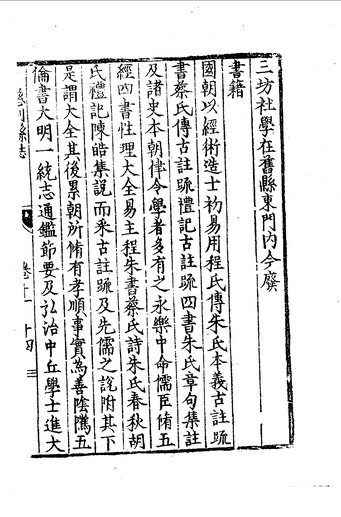 三坊社學在舊縣東門內今廢
書籍
國朝以經術造士初易用程氏傳朱氏本義古註䟽
書蔡氏傳古註䟽禮記古註䟽四書朱氏章句集註
及諸史本朝律令學者多有之永樂中命儒臣脩五
經四書性理大全易主程朱書蔡氏詩朱氏春秋胡
氏禮記陳皓集說而采古註䟽及先儒之說附其下
是謂大全其後累朝所脩有孝順事實為善陰隲五
倫書大明一統志通鑑節要及弘治中丘學士進大
慈利縣志
卷十一
十四